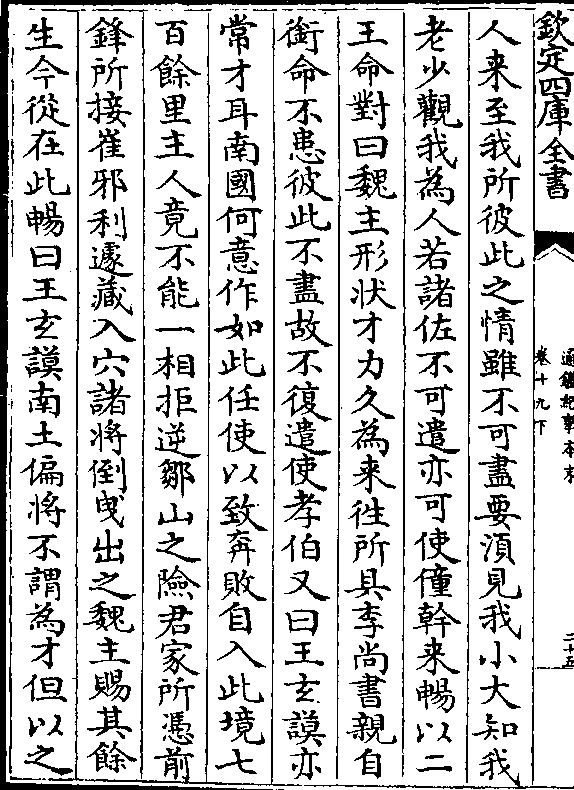 欽定四庫全書
通鑑紀事本末
卷十九下
二十五
人来至我所彼此之情雖不可盡要湏見我小大知我
老少觀我為人若諸佐不可遣亦可使僮幹来暢以二
王命對曰魏主形狀才力久為来徃所具李尚書親自
銜命不患彼此不盡故不復遣使孝伯又曰王𤣥謨亦
常才耳南國何意作如此任使以致奔敗自入此境七
百餘里主人竟不能一相拒逆鄒山之險君家所憑前
鋒所接崔邪利遽藏入穴諸將倒曵出之魏主賜其餘
生今從在此暢曰王𤣥謨南土偏將不謂為才但以之